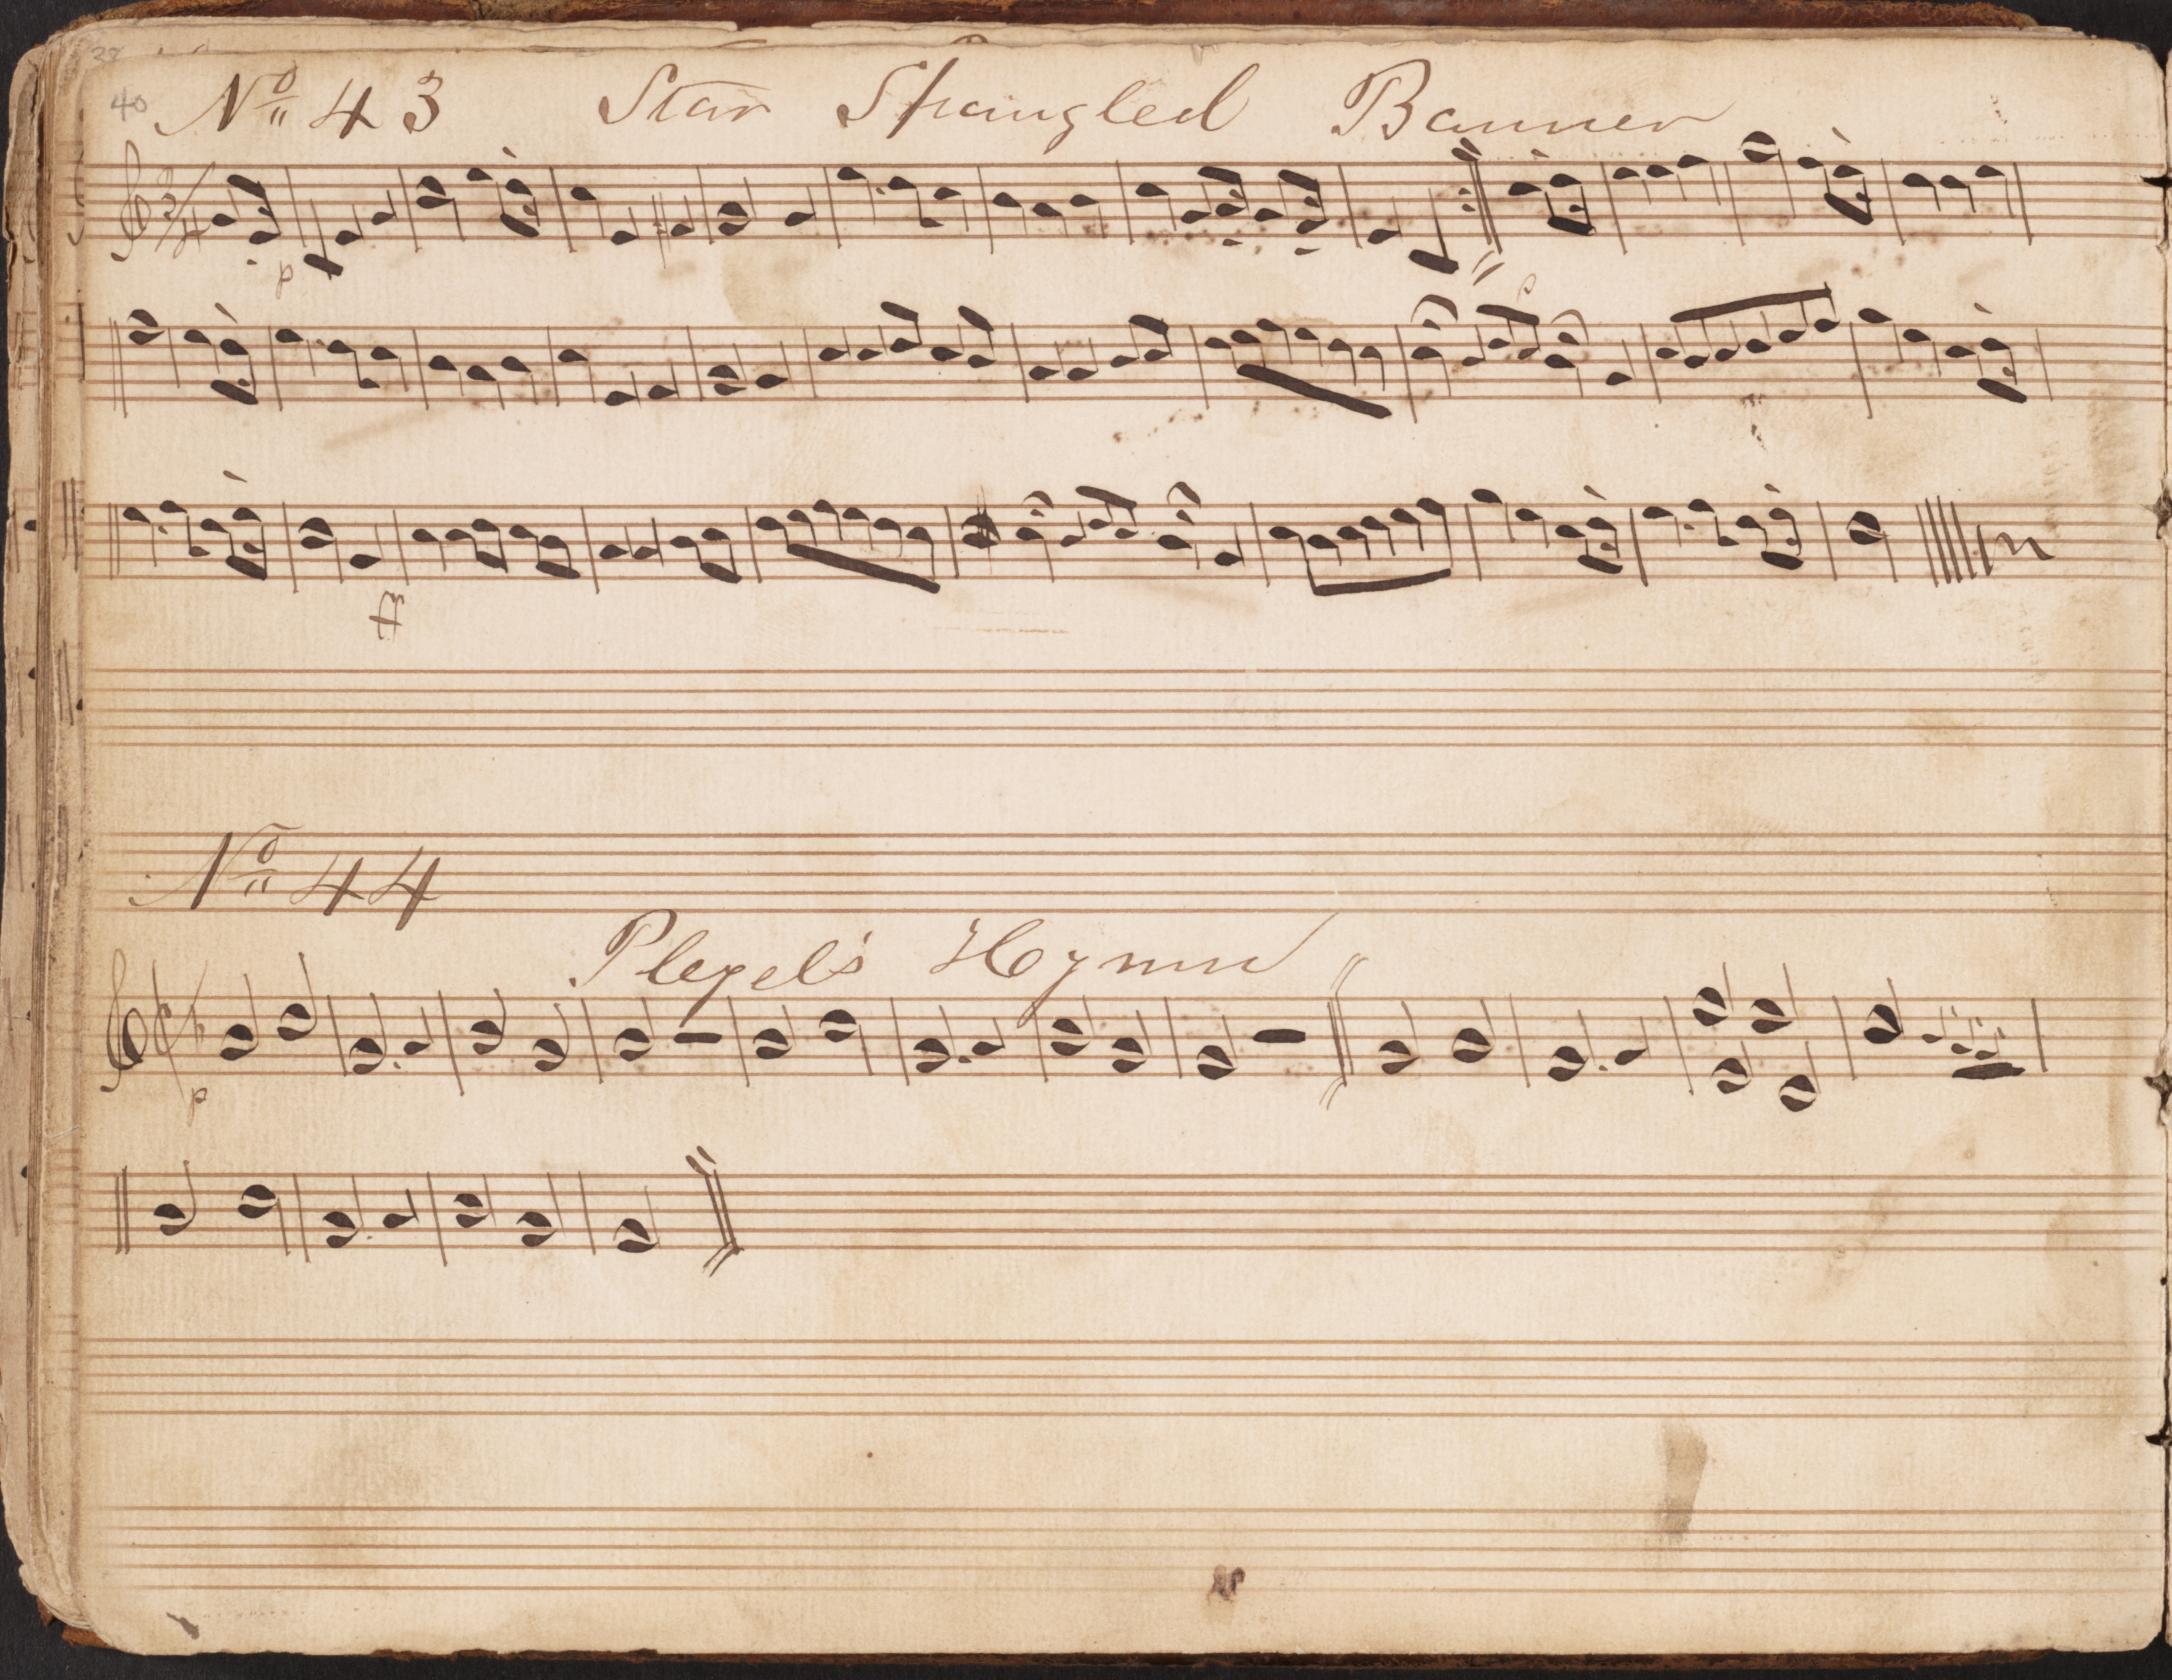 40
No 43 Star Spangled Banner
3/4
p
p
ff
No 44
Pleyel's Hymn
p